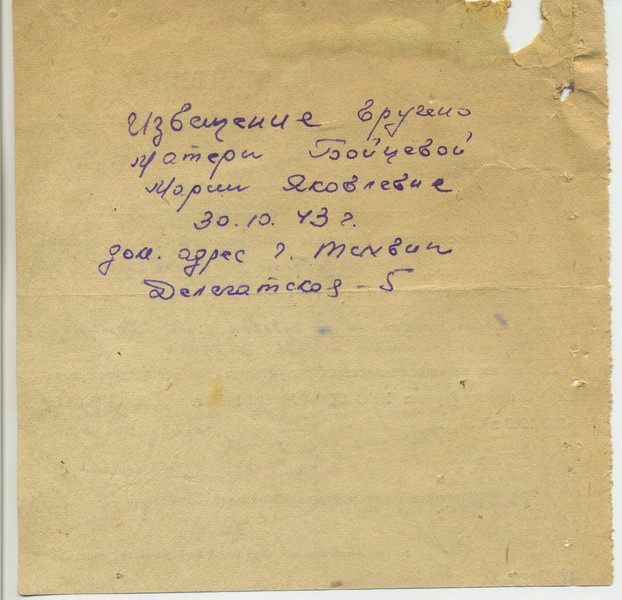 Извещение вручено
Матери Бойцевой
Марии Яковлевне
30.10.43 г.
дом. адрес г. Тихвин
Делегатская - 5